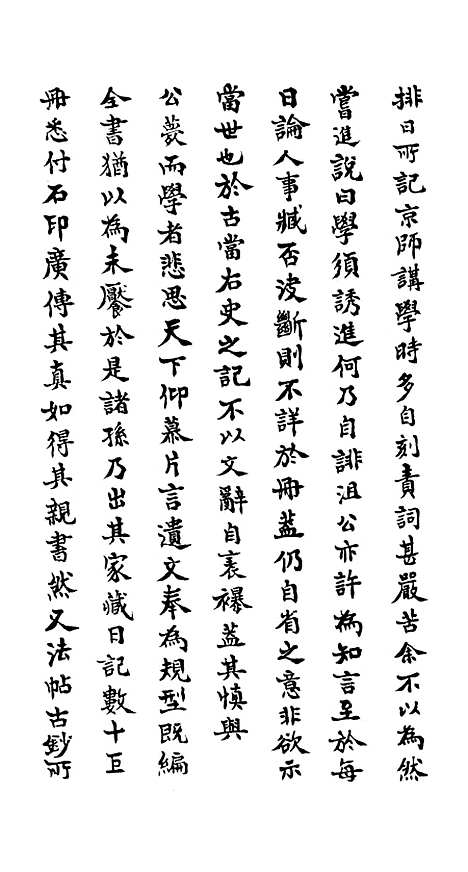 排日所記京師講學時多自刻責詞甚嚴苦余不以為然
嘗進說曰學須誘進何乃自誹沮公亦許為知言至於每
日論人事臧否波斷則不詳於冊葢仍自省之意非欲示
當世也於古當右史之記不以文辭自表襮葢其慎與
公薨而學者悲思天下仰慕片言遺文奉為規型既編
全書猶以為未饜於是諸孫乃出其家藏日記數十巨
冊悉付石印廣傳其真如得其親書然又法帖古鈔所